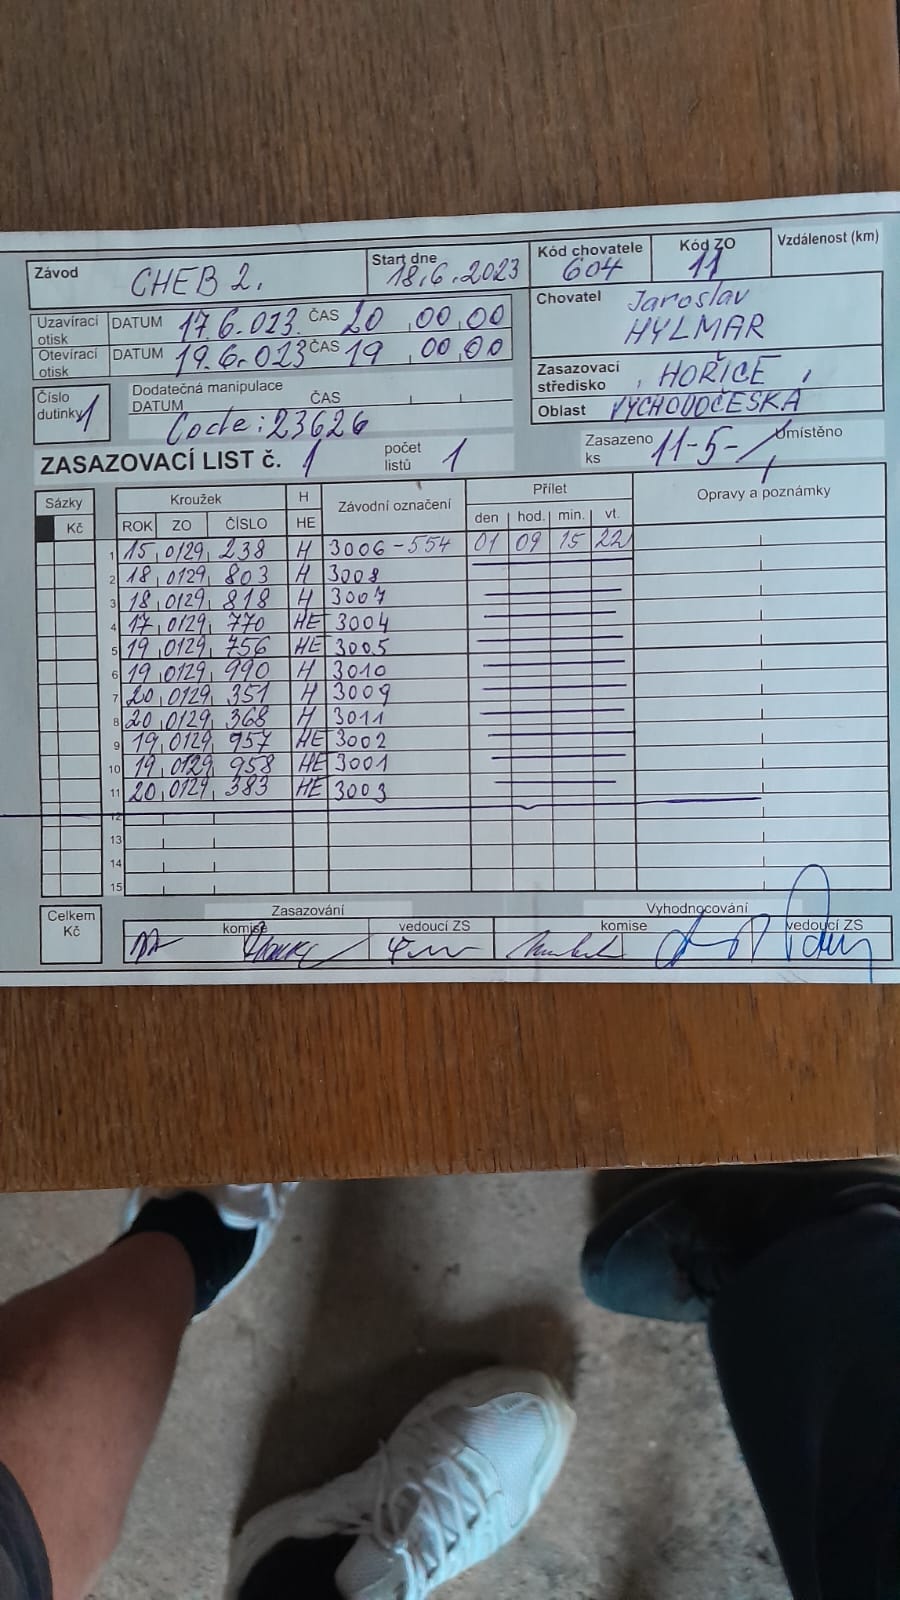 Závod CHEB 2. Start dne 18.6.2023 Kód chovatele 604 Kód ZO 11 Vzdálenost (km)
Uzavírací otisk DATUM 17.6.023. ČAS 20 00 00
Otevírací otisk DATUM 19.6.023 ČAS 19 00 00
Chovatel Jaroslav HYLMAR
Zasazovací středisko HOŘICE
Oblast VÝCHODOČESKÁ
Číslo dutinky 1
Dodatečná manipulace
DATUM ČAS
Code: 23626
Zasazeno ks 11-5- Umístěno
ZASAZOVACÍ LIST č. 1 počet listů 1
Sázky Kroužek H Závodní označení Přílet Opravy a poznámky
Kč ROK ZO ČÍSLO HE den hod. min. vt.
1 15 0129 238 H 3006-554 01 09 15 22
2 18 0129 803 H 3008
3 18 0129 818 H 3007
4 17 0129 770 HE 3004
5 19 0129 756 HE 3005
6 19 0129 990 H 3010
7 20 0129 351 H 3009
8 20 0129 368 H 3011
9 19 0129 957 HE 3002
10 19 0129 958 HE 3001
11 20 0129 383 HE 3003
12
13
14
15
Celkem Kč
Zasazování Vyhodnocování
komise vedoucí ZS komise vedoucí ZS